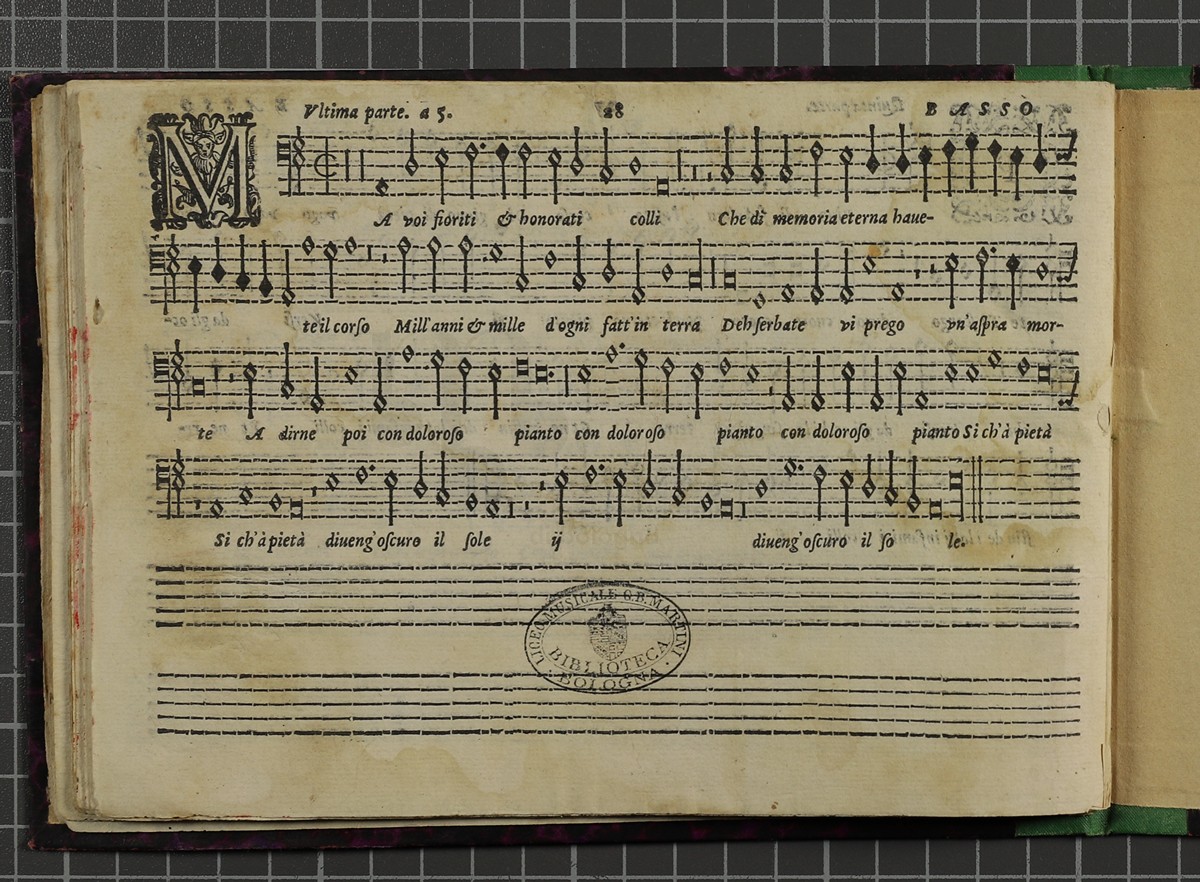 Vltima parte. a 5. 28 BASSO
MA voi fioriti & honorati colli Che dì memoria eterna haue-
te il corso Mill'anni & mille d'ogni fatt'in terra Deh serbate vi prego vn'aspra mor-
te A dirne poi con doloroso pianto con doloroso pianto con doloroso pianto Si ch'à pietà
Si ch'à pietà diueng'oscuro il sole ij diueng'oscuro il so le.
LICEO MUSICALE G.B. MARTINI
BIBLIOTECA
BOLOGNA